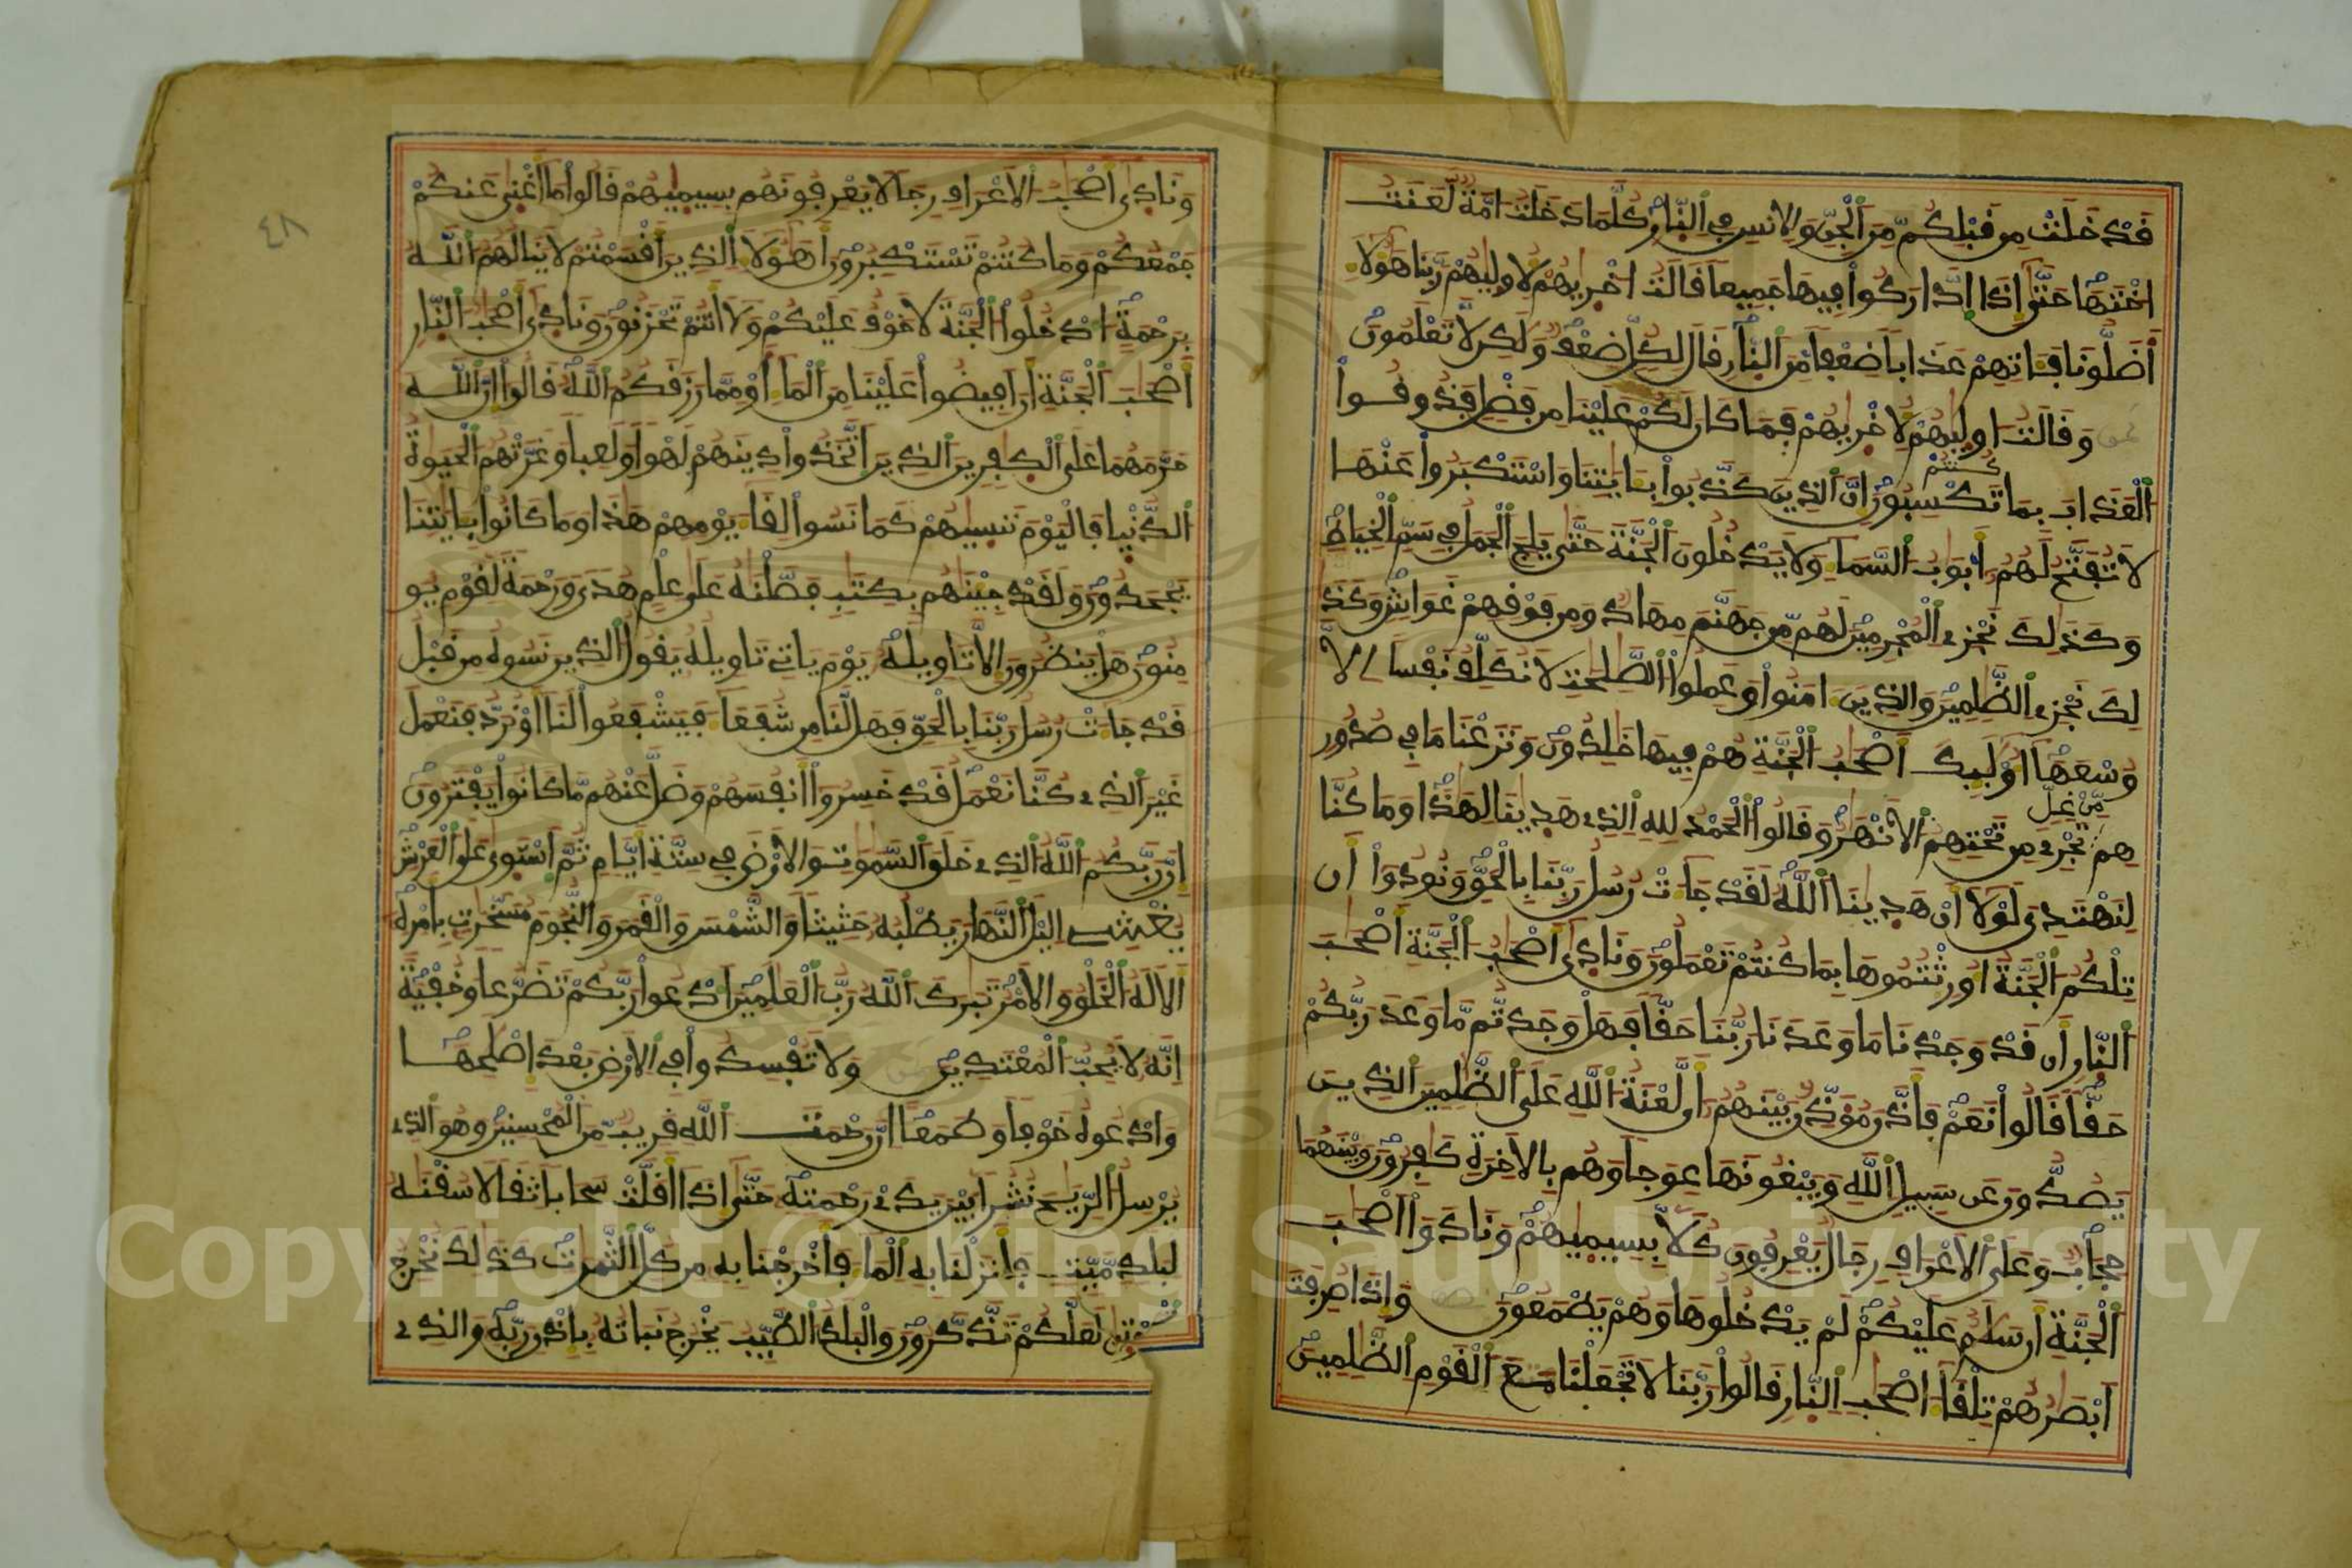 قَدْ خَلَتْ مِن قَبْلِكُم مِّنَ ٱلْجِنِّ وَالِانسِ فِي ٱلنّارِ كُلَّمَا دَخَلَت امَّةٌ لَّعَنَتُ
اخْتَهَا حَتَّىٰ إِذَا ادَّارَكُوا فِيهَا جَمِيعاً قَالَتُ اخْرٰيهُمْ لِاولٰيهُمْ رَبَّنَا هَٰؤُلَا
أَضَلُّونَا فَـَٔاتِهِمْ عَذَاباً ضِعْفاً مِّنَ ٱلنّارِ قَالَ لِكُلٍّ ضِعْفٌ وَلَٰكِن لَّا تَعْلَمُونَ
وَقَالَتُ اولٰيهُمْ لِاخْرٰيهُمْ فَمَا كَانَ لَكُمْ عَلَيْنَا مِن فَضْلٍ فَذُوقُوا
ٱلْعَذَابَ بِمَا كُنتُمْ تَكْسِبُونَ إِنَّ ٱلذِينَ كَذَّبُوا بِـَٔايَٰتِنَا وَاسْتَكْبَرُوا عَنْهَا
لَا تُفَتَّحُ لَهُمُ أَبْوَٰبُ ٱلسَّمَا وَلَا يَدْخُلُونَ ٱلْجَنَّةَ حَتَّىٰ يَلِجَ ٱلْجَمَلُ فِي سَمِّ ٱلْخِيَاطِ
وَكَذَٰلِكَ نَجْزِي ٱلْمُجْرِمِينَ لَهُم مِّن جَهَنَّمَ مِهَادٌ وَمِن فَوْقِهِمْ غَوَاشٍ وَكَذَ
لِكَ نَجْزِي ٱلظَّٰلِمِينَ وَالذِينَ ءامَنُوا وَعَمِلُوا ٱلصَّٰلِحَٰتِ لَا نُكَلِّفُ نَفْساً إِلَّا
وُسْعَهَا أُوْلَٰئِكَ أَصْحَٰبُ ٱلْجَنَّةِ هُمْ فِيهَا خَٰلِدُونَ وَنَزَعْنَا مَا فِي صُدُورِ
هِم مِّنْ غِلٍّ تَجْرِي مِن تَحْتِهِمُ ٱلَانْهَٰرُ وَقَالُوا ٱلْحَمْدُ لِلهِ ٱلذِي هَدٰينَا لِهَٰذَا وَمَا كُنَّا
لِنَهْتَدِيَ لَوْلَا أَنْ هَدٰينَا ٱللَّهُ لَقَدْ جَاتْ رُسُلُ رَبِّنَا بِالْحَقِّ وَنُودُوا أَن
تِلْكُمُ ٱلْجَنَّةُ أُورِثْتُمُوهَا بِمَا كُنتُمْ تَعْمَلُونَ وَنَادَىٰ أَصْحَٰبُ ٱلْجَنَّةِ أَصْحَٰبَ
ٱلنّارِ أَن قَدْ وَجَدْنَا مَا وَعَدَنَا رَبُّنَا حَقّاً فَهَلْ وَجَدتُّم مَّا وَعَدَ رَبُّكُمْ
حَقّاً قَالُوا نَعَمْ فَأَذَّنَ مُؤَذِّنٌ بَيْنَهُمُ أَن لَّعْنَةُ ٱللَّهِ عَلَى ٱلظَّٰلِمِينَ ٱلذِينَ
يَصُدُّونَ عَن سَبِيلِ ٱللَّهِ وَيَبْغُونَهَا عِوَجاً وَهُم بِالَاخِرَةِ كَٰفِرُونَ وَبَيْنَهُمَا
حِجَابٌ وَعَلَى ٱلَاعْرَافِ رِجَالٌ يَعْرِفُونَ كُلّاً بِسِيمٰيهُمْ وَنَادَوَا أَصْحَٰبَ
ٱلْجَنَّةِ أَن سَلَٰمٌ عَلَيْكُمْ لَمْ يَدْخُلُوهَا وَهُمْ يَطْمَعُونَ وَإِذَا صُرِفَتَ
أَبْصَٰرُهُمْ تِلْقَا أَصْحَٰبِ ٱلنّارِ قَالُوا رَبَّنَا لَا تَجْعَلْنَا مَعَ ٱلْقَوْمِ ٱلظَّٰلِمِينَ
٤٨
وَنَادَىٰ أَصْحَٰبُ ٱلَاعْرَافِ رِجَالًا يَعْرِفُونَهُم بِسِيمٰيهُمْ قَالُوا مَا أَغْنَىٰ عَنكُمْ
جَمْعُكُمْ وَمَا كُنتُمْ تَسْتَكْبِرُونَ أَهَٰؤُلَا ٱلذِينَ أَقْسَمْتُمْ لَا يَنَالُهُمُ ٱللَّهُ
بِرَحْمَةٍ ادْخُلُوا ٱلْجَنَّةَ لَا خَوْفٌ عَلَيْكُمْ وَلَا أَنتُمْ تَحْزَنُونَ وَنَادَىٰ أَصْحَٰبُ ٱلنّارِ
أَصْحَٰبَ ٱلْجَنَّةِ أَنَ افِيضُوا عَلَيْنَا مِنَ ٱلْمَا أَوْ مِمَّا رَزَقَكُمُ ٱللَّهُ قَالُوا إِنَّ ٱللَّهَ
حَرَّمَهُمَا عَلَى ٱلْكَٰفِرِينَ ٱلذِينَ ٱتَّخَذُوا دِينَهُمْ لَهْواً وَلَعِباً وَغَرَّتْهُمُ ٱلْحَيَوٰةُ
ٱلدُّنْيا فَالْيَوْمَ نَنسٰيهُمْ كَمَا نَسُوا لِقَا يَوْمِهِمْ هَٰذَا وَمَا كَانُوا بِـَٔايَٰتِنَا
يَجْحَدُونَ وَلَقَدْ جِيْنَٰهُم بِكِتَٰبٍ فَصَّلْنَٰهُ عَلَىٰ عِلْمٍ هُدًى وَرَحْمَةً لِّقَوْمٍ يُو
مِنُونَ هَلْ يَنظُرُونَ إِلَّا تَاوِيلَهُ يَوْمَ يَاتِي تَاوِيلُهُ يَقُولُ ٱلذِينَ نَسُوهُ مِن قَبْلُ
قَدْ جَاتْ رُسُلُ رَبِّنَا بِالْحَقِّ فَهَل لَّنَا مِن شُفَعَا فَيَشْفَعُوا لَنَا أَوْ نُرَدُّ فَنَعْمَلَ
غَيْرَ ٱلذِي كُنَّا نَعْمَلُ قَدْ خَسِرُوا أَنفُسَهُمْ وَضَلَّ عَنْهُم مَّا كَانُوا يَفْتَرُونَ
إِنَّ رَبَّكُمُ ٱللَّهُ ٱلذِي خَلَقَ ٱلسَّمَٰوَٰتِ وَالَارْضَ فِي سِتَّةِ أَيَّامٍ ثُمَّ ٱسْتَوَىٰ عَلَى ٱلْعَرْشِ
يُغْشِي اليْلَ ٱلنَّهَارَ يَطْلُبُهُ حَثِيثاً وَالشَّمْسَ وَالْقَمَرَ وَالنُّجُومَ مُسَخَّرَٰتٍ بِأَمْرِهِ
أَلَا لَهُ ٱلْخَلْقُ وَالَامْرُ تَبَٰرَكَ ٱللَّهُ رَبُّ ٱلْعَٰلَمِينَ ادْعُوا رَبَّكُمْ تَضَرُّعاً وَخُفْيَةً
إِنَّهُ لَا يُحِبُّ ٱلْمُعْتَدِينَ وَلَا تُفْسِدُوا فِي ٱلَارْضِ بَعْدَ إِصْلَٰحِهَا
وَادْعُوهُ خَوْفاً وَطَمَعاً إِنَّ رَحْمَتَ ٱللَّهِ قَرِيبٌ مِّنَ ٱلْمُحْسِنِينَ وَهُوَ ٱلذِي
يُرْسِلُ ٱلرِّيَٰحَ نُشُراً بَيْنَ يَدَيْ رَحْمَتِهِ حَتَّىٰ إِذَا أَقَلَّتْ سَحَاباً ثِقَالًا سُقْنَٰهُ
لِبَلَدٍ مَّيِّتٍ فَأَنزَلْنَا بِهِ ٱلْمَا فَأَخْرَجْنَا بِهِ مِن كُلِّ ٱلثَّمَرَٰتِ كَذَٰلِكَ نُخْرِجُ
لَعَلَّكُمْ تَذَّكَّرُونَ وَالْبَلَدُ ٱلطَّيِّبُ يَخْرُجُ نَبَاتُهُ بِإِذْنِ رَبِّهِ وَالذِي
Copyright © King Saud University